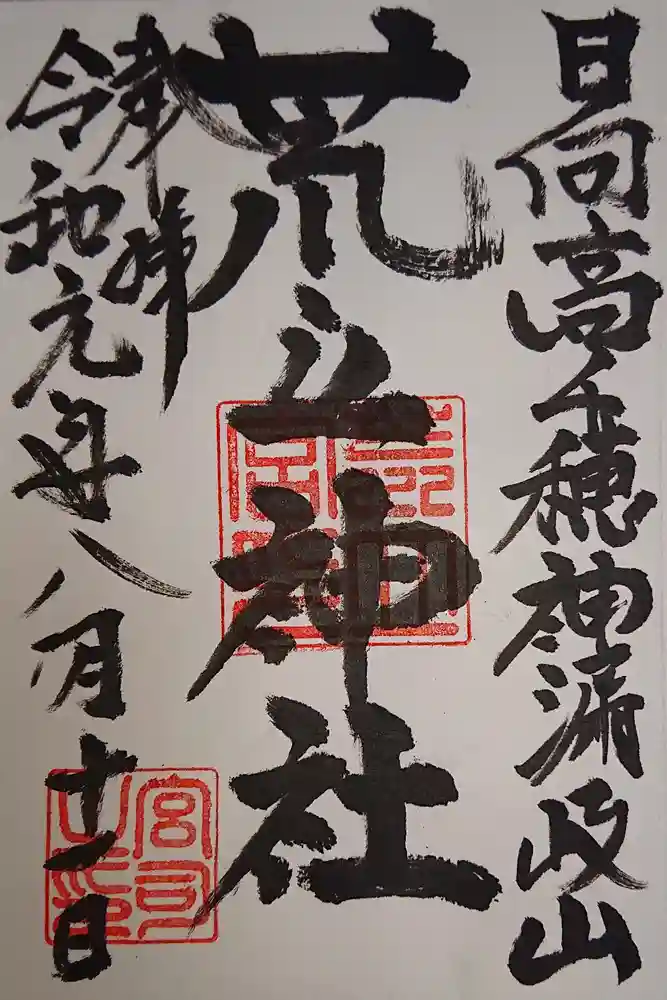 日向高千穂神漏岐山
荒立神社
奉拝
令和元年八月十一日
宮司之印